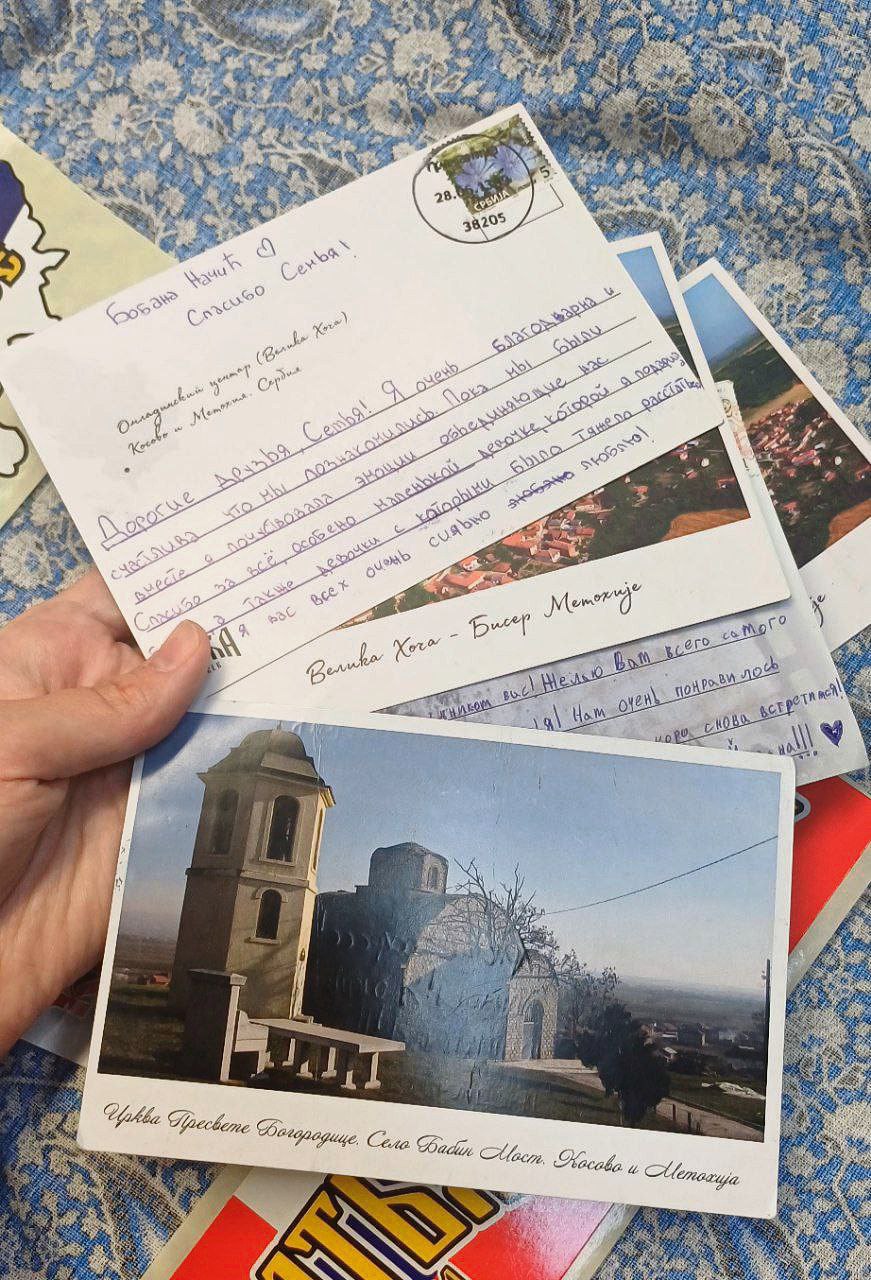 28.
СРБИЈА
5
38205
Бобана Начић ♡
Спасибо Семья!
Омладински центар (Велика Хоча)
Косово и Метохия. Сербия
Дорогие друзья, Семья! Я очень благодварна и
счастлива что мы познакомились. Пока мы были
вместе я почувствовала эмоции объединяющие нас
Спасибо за всё, особено маленькой девочке, которой я подарила
а также девочки с которыми было тяжело расстаться
Я вас всех очень сильно люблю!
КА
Велика Хоча - Бисер Метохије
је
вас! Желаю Вам всего самого
я! Нам очень понравилось
снова встретимся!
на!!!
Црква Пресвете Богородице. Село Бабин Мост. Косово и Метохија
АТЬЯ